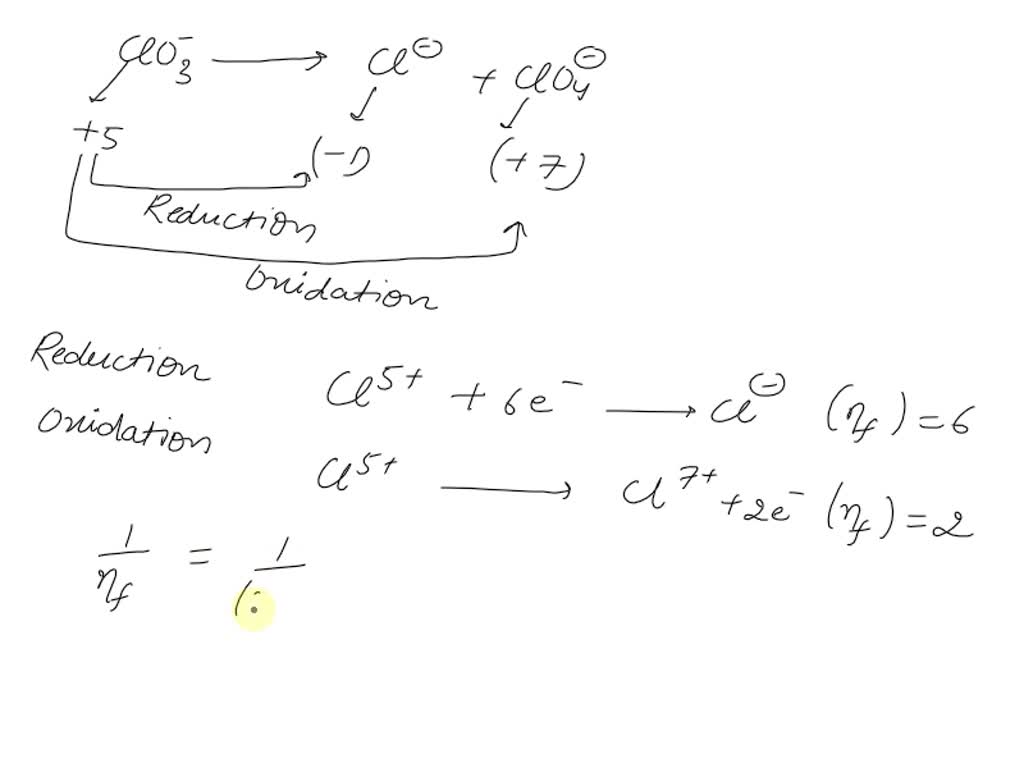 ClO₃⁻ ⟶ Cl⊖ + ClO₄⊖
+5 (-1) (+7)
Reduction
Oxidation
Reduction Cl⁵⁺ + 6e⁻ ⟶ Cl⊖ (ηf) = 6
Oxidation Cl⁵⁺ ⟶ Cl⁷⁺ + 2e⁻ (ηf) = 2
1/ηf = 1/(